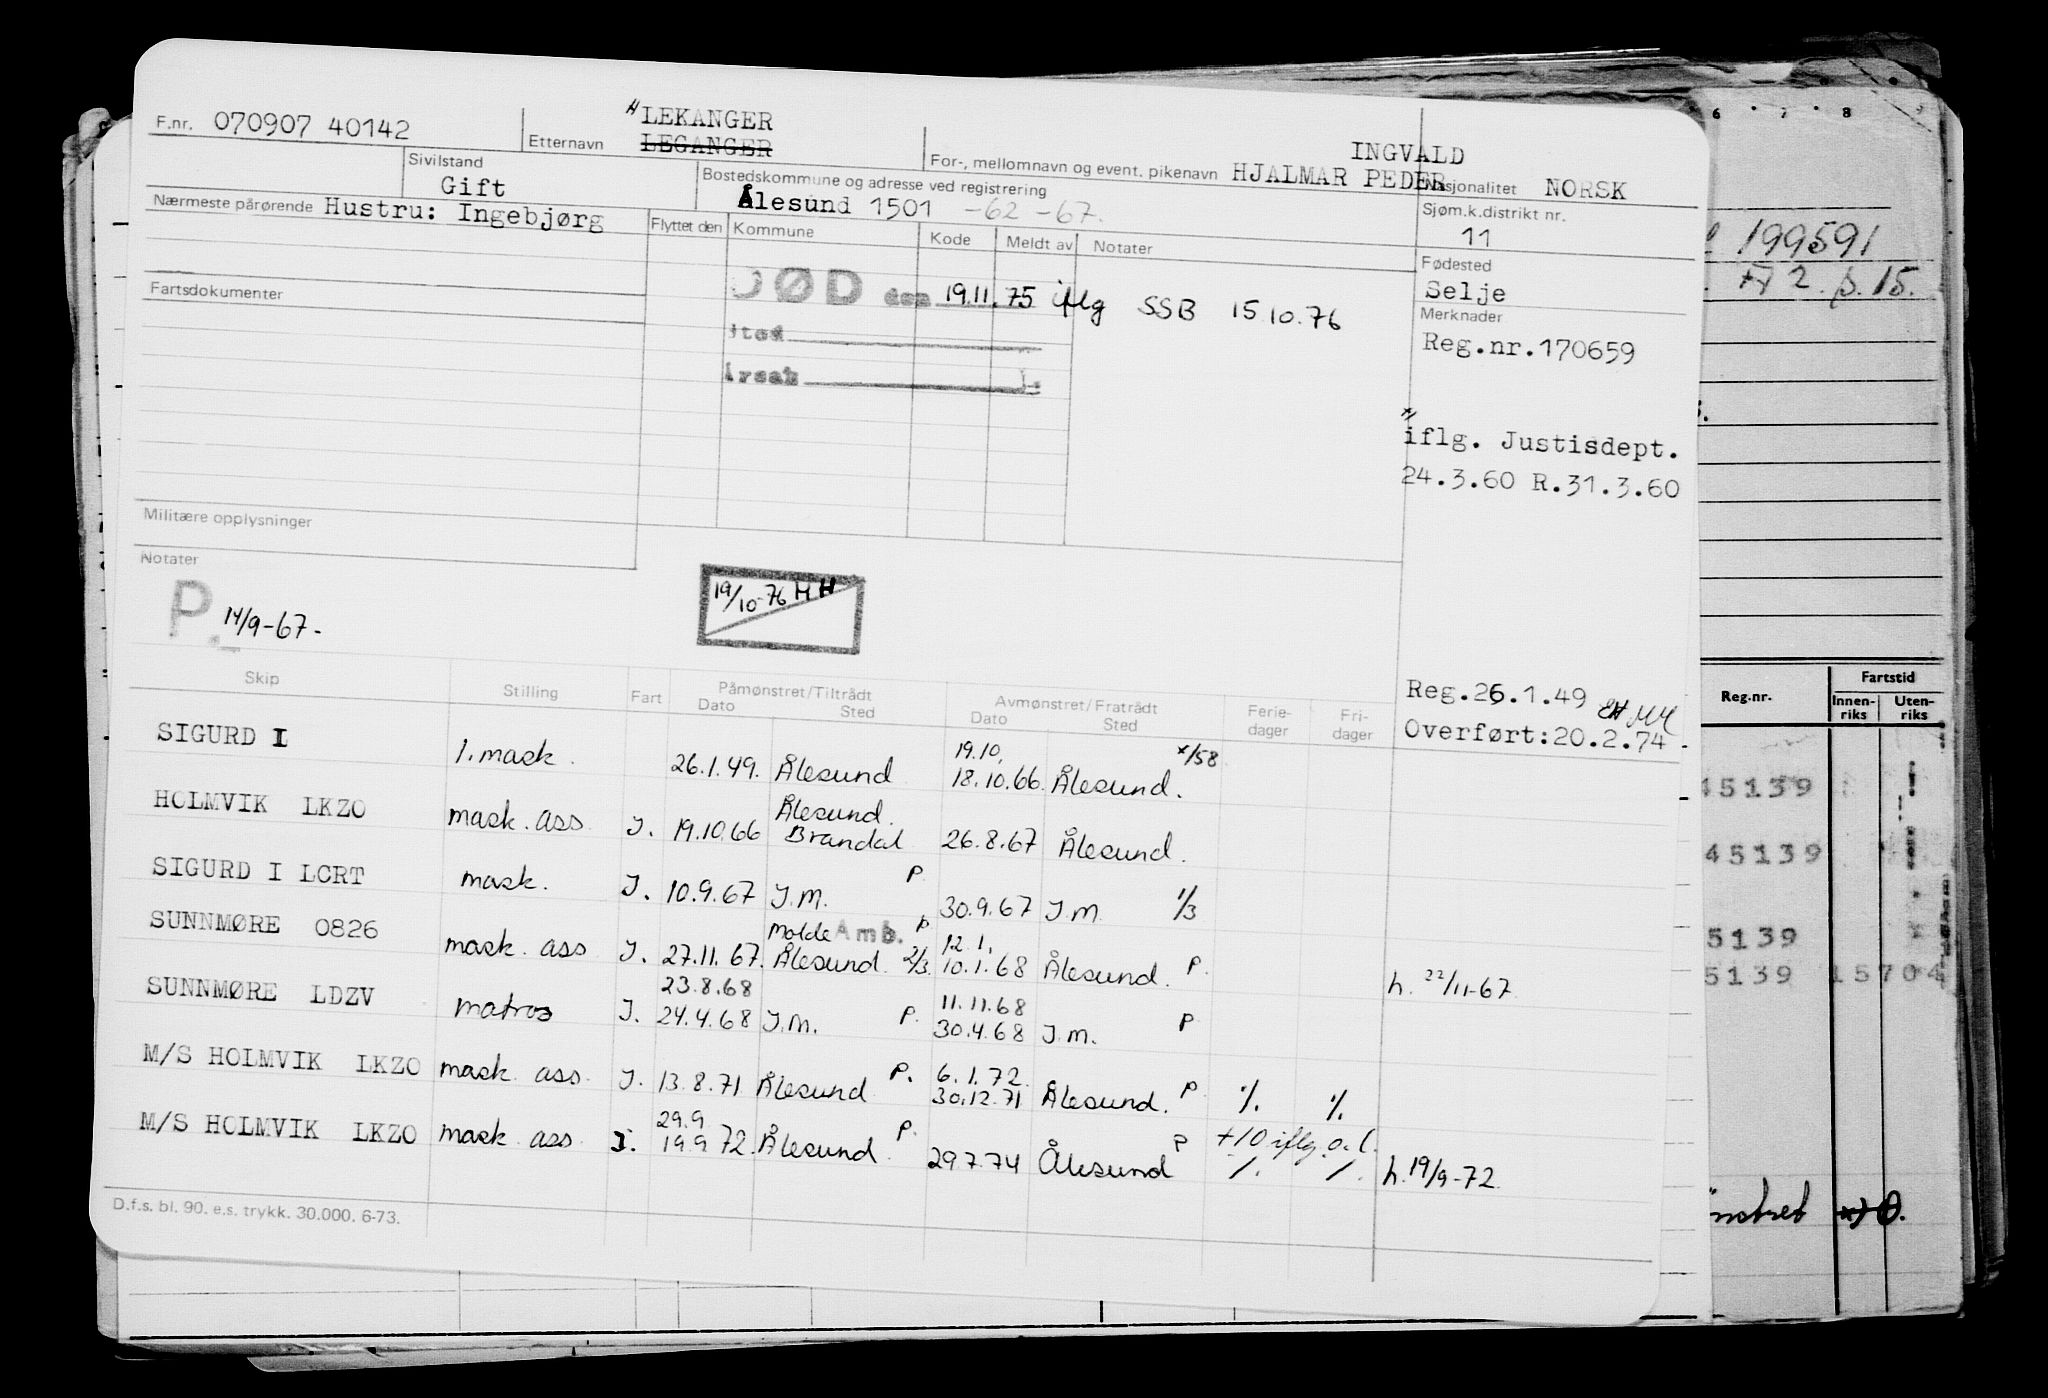 F.nr. 070907 40142
Etternavn
"LEKANGER
LEGANGER
For-, mellomnavn og event. pikenavn
INGVALD
HJALMAR PEDER
Nasjonalitet NORSK
Sivilstand
Gift
Bostedskommune og adresse ved registrering
Ålesund 1501 -62 -67.
Sjøm.k.distrikt nr.
11
Nærmeste pårørende Hustru: Ingebjørg
Flyttet den Kommune Kode Meldt av Notater
Fødested
Selje
DØD den 19.11.75 iflg SSB 15 10.76
sted
Årsak
Fartsdokumenter
Merknader
Reg.nr.170659
"
iflg. Justisdept.
24.3.60 R.31.3.60
Militære opplysninger
Notater
P. 14/9-67-
19/10-76 HH
Reg.26.1.49
Overført:20.2.74-
Skip Stilling Fart Påmønstret/Tiltrådt Avmønstret/Fratrådt Ferie- Fri-
Dato Sted Dato Sted dager dager
SIGURD I 1. mask. 26.1.49. Ålesund 19.10, 18.10.66. Ålesund. x/58
HOLMVIK LKZO mask. ass. I. 19.10.66 Ålesund. Brandal 26.8.67 Ålesund.
SIGURD I LCRT mask. I. 10.9.67 I.M. P 30.9.67 I.M. 1/3
SUNNMØRE 0826 mask. ass I. 27.11.67. Molde Amb. P Ålesund. 2/3 12.1. 10.1.68 Ålesund. P. h. 22/11-67
SUNNMØRE LDZV matros I. 23.8.68 24.4.68 I.M. P. 11.11.68 30.4.68 I.M. P
M/S HOLMVIK LKZO mask. ass. I. 13.8.71 Ålesund P. 6.1.72. 30.12.71 Ålesund. P. ./. ./.
M/S HOLMVIK LKZO mask. ass. I. 29.9 19.9.72. Ålesund. P. 29.7.74 Ålesund P +10 iflg. o.l. ./. ./. h. 19/9-72.
D.f.s. bl. 90. e.s. trykk. 30.000. 6-73.
6 7 8
199591
2. p. 15.
Reg.nr. Fartstid
Innen-riks Uten-riks
45139
45139
5139
5139 15704